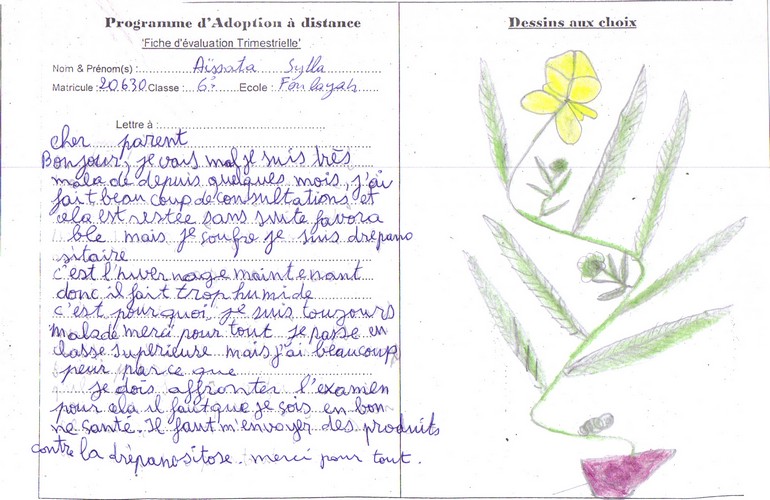 Programme d'Adoption à distance
'Fiche d'évaluation Trimestrielle'
Nom & Prénom(s) : Aïssata Sylla
Matricule : 20630 Classe : 6è Ecole : Foulayah
Lettre à :
cher parent
Bonjour, je vais mal je suis très
malade depuis quelques mois, j'ai
fait beaucoup de consultations et
cela est restée sans suite favora
ble mais je soufre je suis drépano
sitaire
c'est l'hivernage maintenant
donc il fait trop humide
c'est pourquoi je suis toujours
malade merci pour tout je passe en
classe superieure mais j'ai beaucoup
peur parce que
je dois affronter l'examen
pour cela il faut que je sois en bon
ne santé. Il faut m'envoyer des produits
contre la drépanositose. merci pour tout.
Dessins aux choix